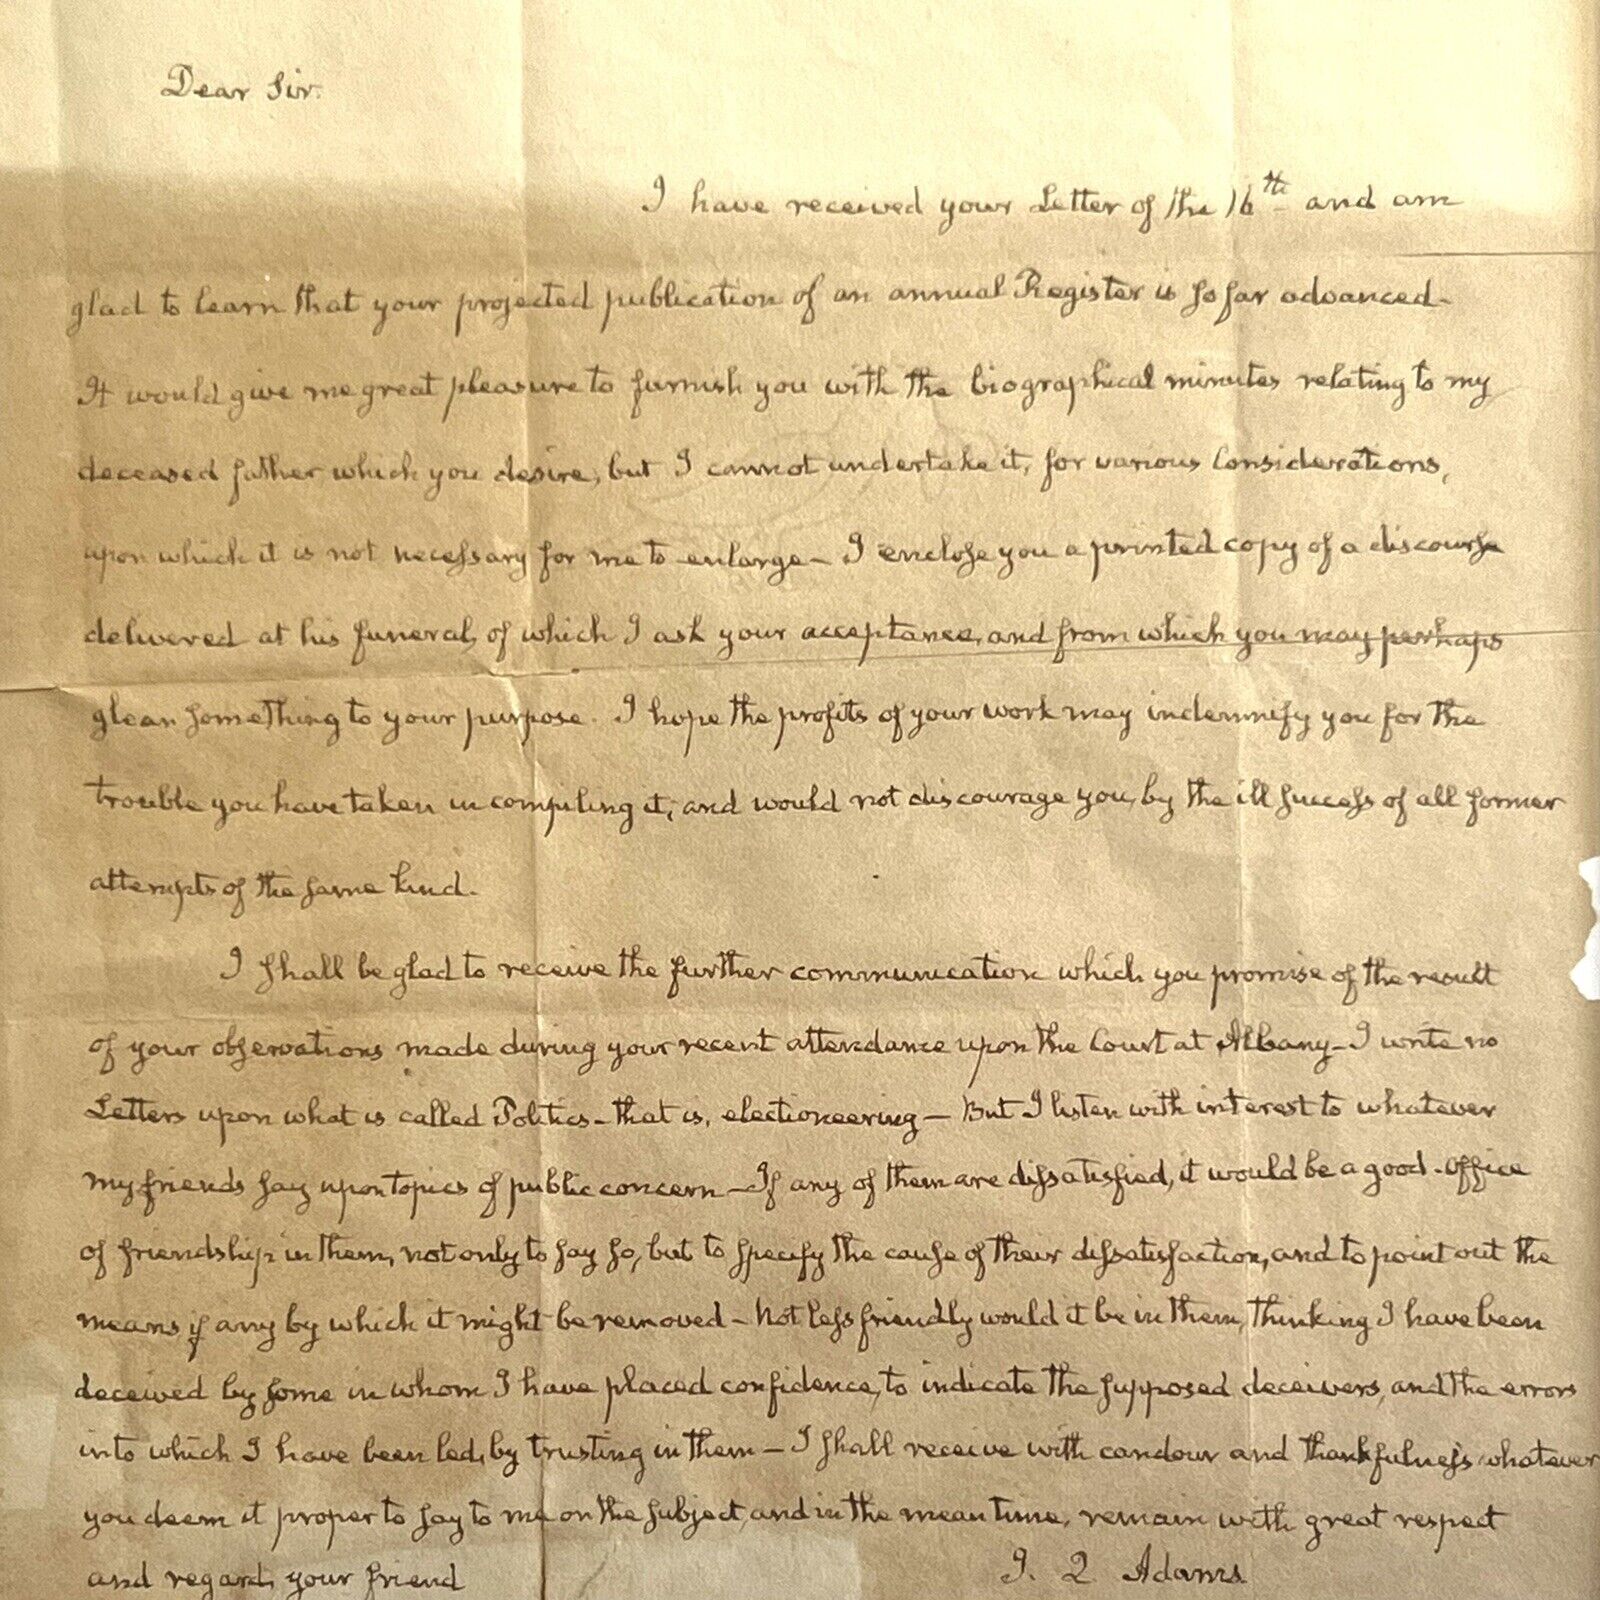 Dear Sir.
I have received your Letter of the 16th and am
glad to learn that your projected publication of an annual Register is so far advanced-
It would give me great pleasure to furnish you with the biographical minutes relating to my
deceased father which you desire, but I cannot undertake it, for various Considerations,
upon which it is not necessary for me to enlarge- I enclose you a printed copy of a discourse
delivered at his funeral, of which I ask your acceptance, and from which you may perhaps
glean something to your purpose. I hope the profits of your work may indemnify you for the
trouble you have taken in compiling it; and would not discourage you, by the ill success of all former
attempts of the same kind.
I shall be glad to receive the further communication which you promise of the result
of your observations made during your recent attendance upon the Court at Albany- I write no
Letters upon what is called Politics- that is, electioneering- But I listen with interest to whatever
my friends say upon topics of public concern- If any of them are dissatisfied, it would be a good Office
of friendship in them, not only to say so, but to specify the cause of their dissatisfaction, and to point out the
means if any by which it might be removed- Not less friendly would it be in them, thinking I have been
deceived by some in whom I have placed confidence, to indicate the supposed deceivers, and the errors
into which I have been led, by trusting in them- I shall receive with candour and thankfulness whatever
you deem it proper to say to me on the subject, and in the mean time, remain with great respect
and regard, your friend
J. Q. Adams